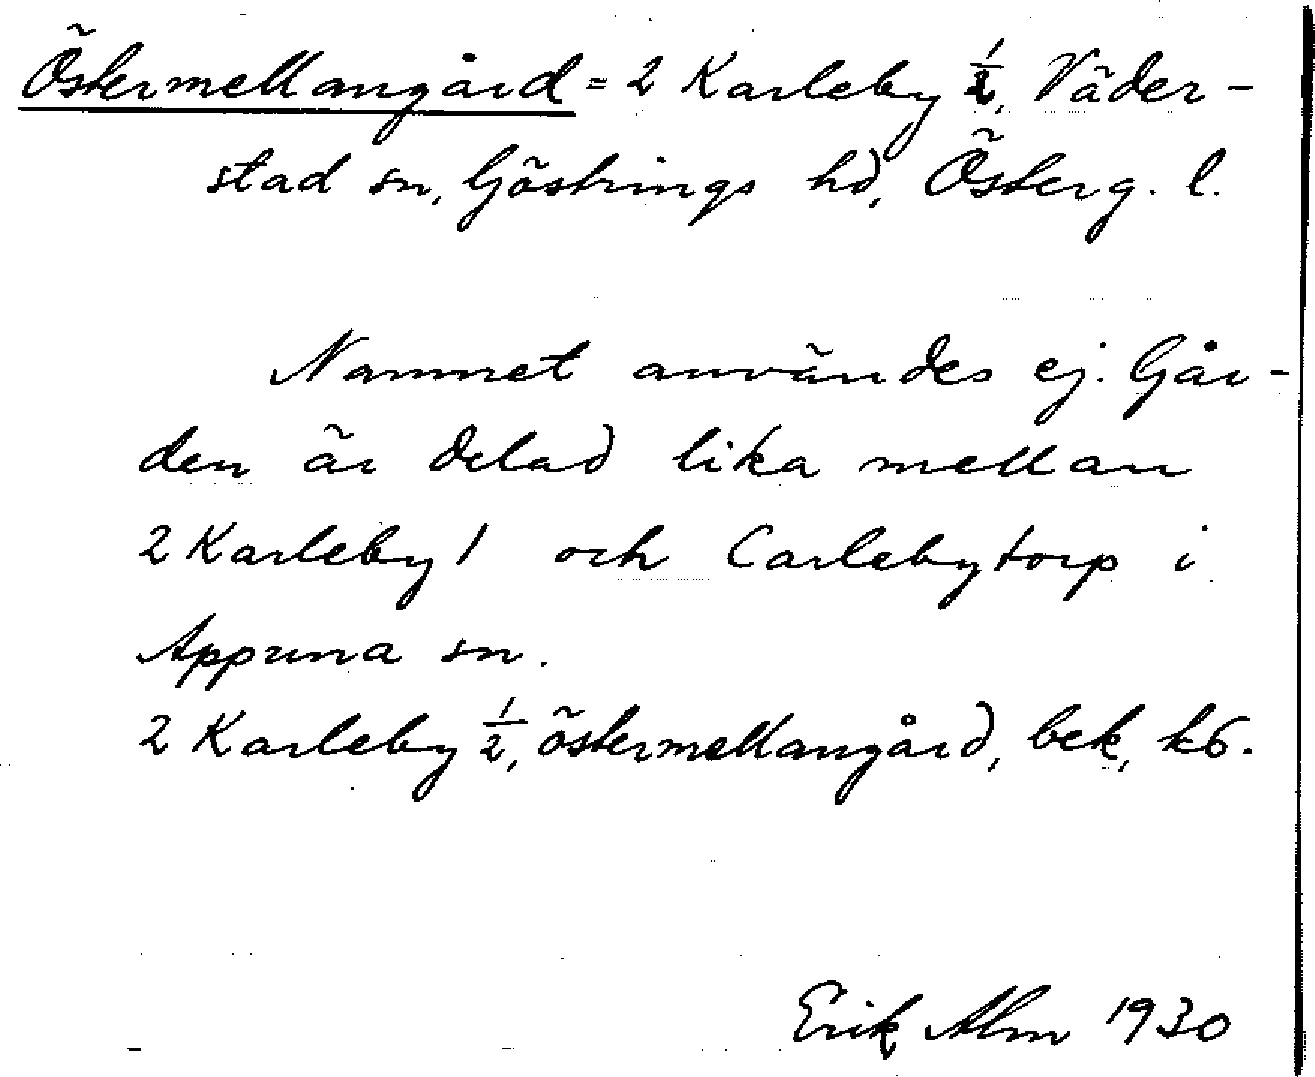 Östermellangård = 2 Karleby 1/2, Väder-
stad sn, Göstrings hd, Österg. l.
Namnet användes ej. Går-
den är delad lika mellan
2 Karleby 1 och Carlebytorp i
Appuna sn.
2 Karleby 1/2, östermellangård, bek, k6.
Erik Alm 1930